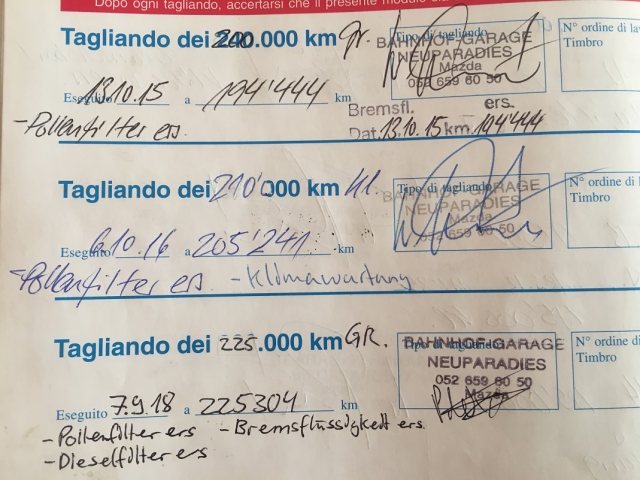 Dopo ogni tagliando, accertarsi che il presente modulo
Tagliando dei 200.000 km gr.
Tipo di tagliando
BAHNHOF-GARAGE
NEUPARADIES
Mazda
052 659 60 50
N° ordine di la
Timbro
Eseguito 13.10.15 a 194'444 km
Bremsfl. ers.
Dat. 13.10.15 km. 194'444
- Pollenfilter ers.
Tagliando dei 210'000 km Kl.
Tipo di tagliando
BAHNHOF-GARAGE
NEUPARADIES
Mazda
052 659 60 50
N° ordine di l
Timbro
Eseguito 6.10.16 a 205'241 km
- Pollenfilter ers. - Klimawartung
Tagliando dei 225.000 km GR.
Tipo di tagliando
BAHNHOF-GARAGE
NEUPARADIES
052 659 60 50
Mazda
N° ordine di
Timbro
Eseguito 7.9.18 a 225304 km
- Pollenfilter ers - Bremsflüssigkeit ers.
- Dieselfilter ers